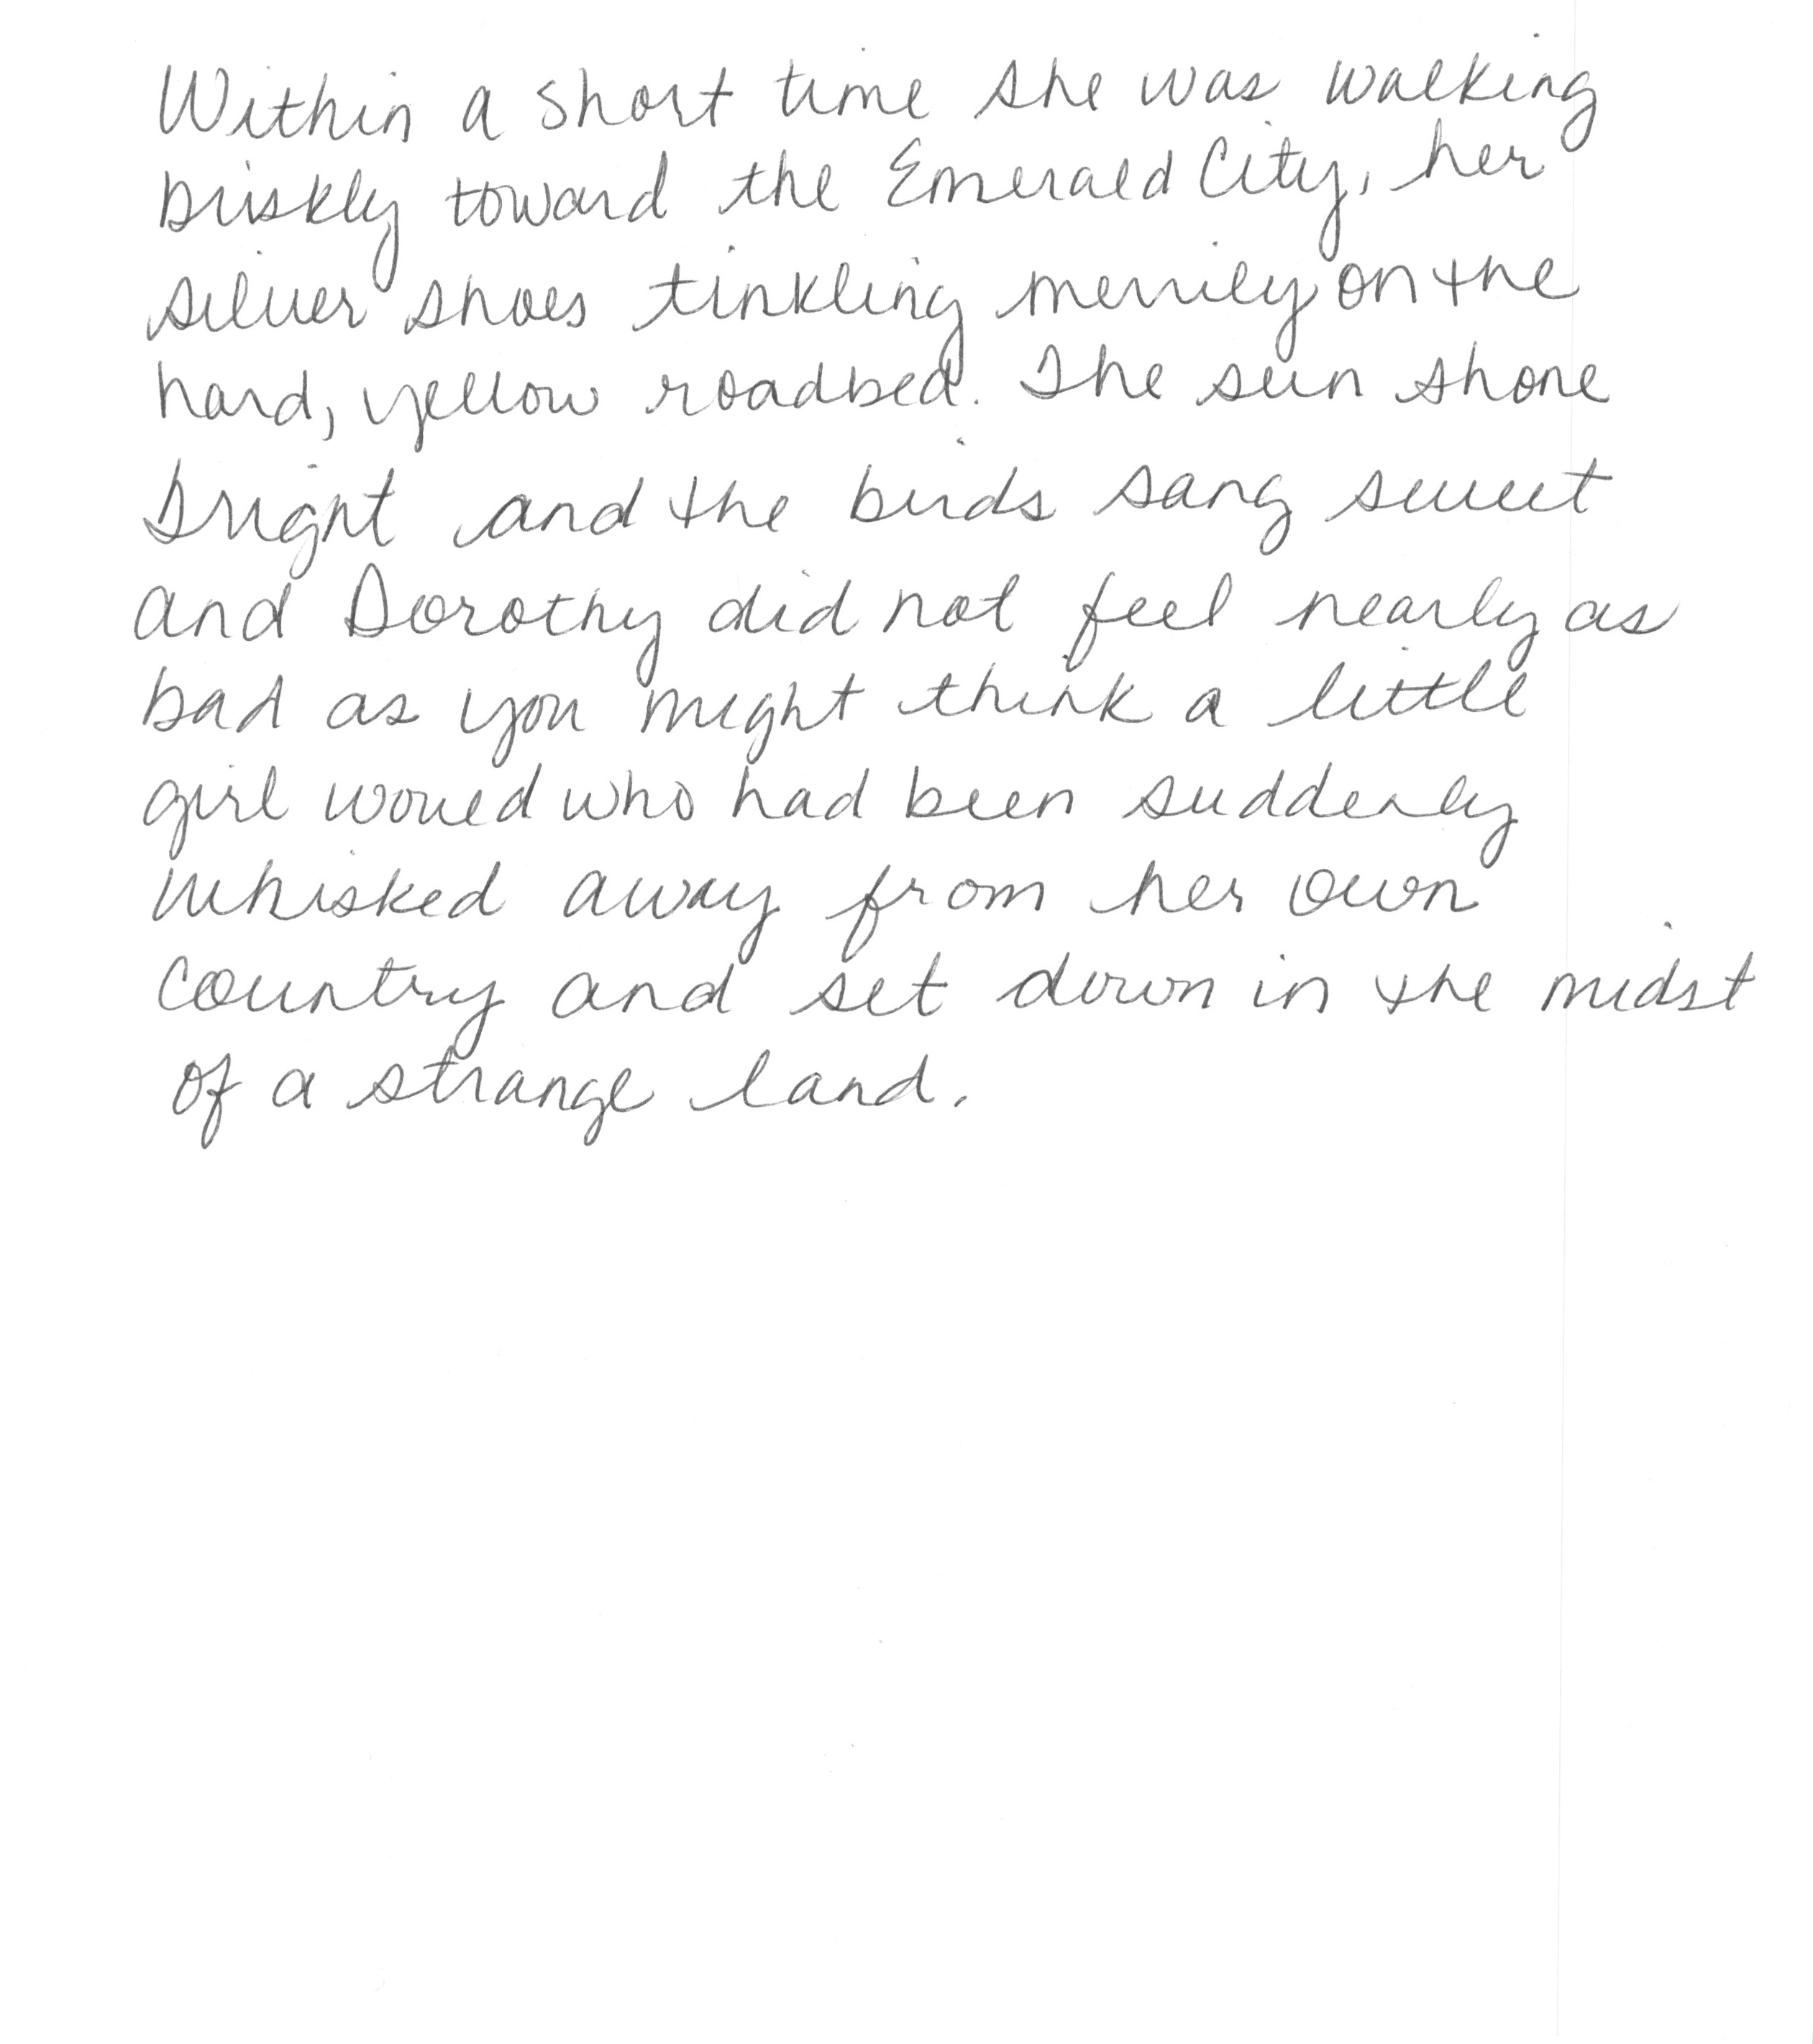 Within a short time she was walking
briskly toward the Emerald City, her
silver shoes tinkling merrily on the
hard, yellow roadbed. The sun shone
bright and the birds sang sweet
and Dorothy did not feel nearly as
bad as you might think a little
girl would who had been suddenly
whisked away from her own
country and set down in the midst
of a strange land.